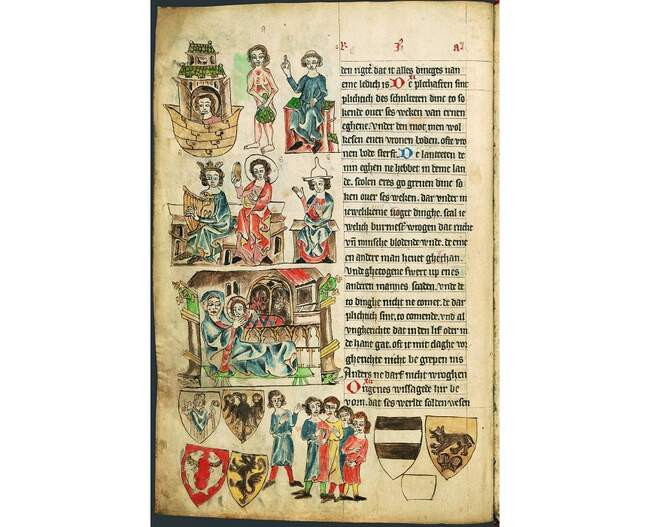 den rigtē. dat it alles dinges uan
eme ledich is. De plechaften sint
plichtich des schulteten dinc to so
kende ouer ses weken van erneu
eghene. vnder den mot men wol
kesen enen vronen boden. oft vro
nen bode sterft. De lantseten de
nin eghen ne hebbet in deme lan
de. scolen eres go greuen dinc so
ken ouer ses weken. dar vnder in
iewelkeme dinghe. scal ie
welich burmestere wrogen dat ruchte
vn̄ minsche blodende wnde. de eme
en ander man heuet ghedhan.
Vnde ghetogene swert up enes
anderen mannes scaden. vnde de
to dinghe nicht ne comet. de dar
plichtich sint, to comende. vnd al
vngherichte dat in den lif oder in
de hant gat. oft it mit claghe vor
gherichte nicht be grepen nis
Anders ne darf nicht wroghen
Origenes wissagede hir be
vorn. dat ses werlde solden wesen